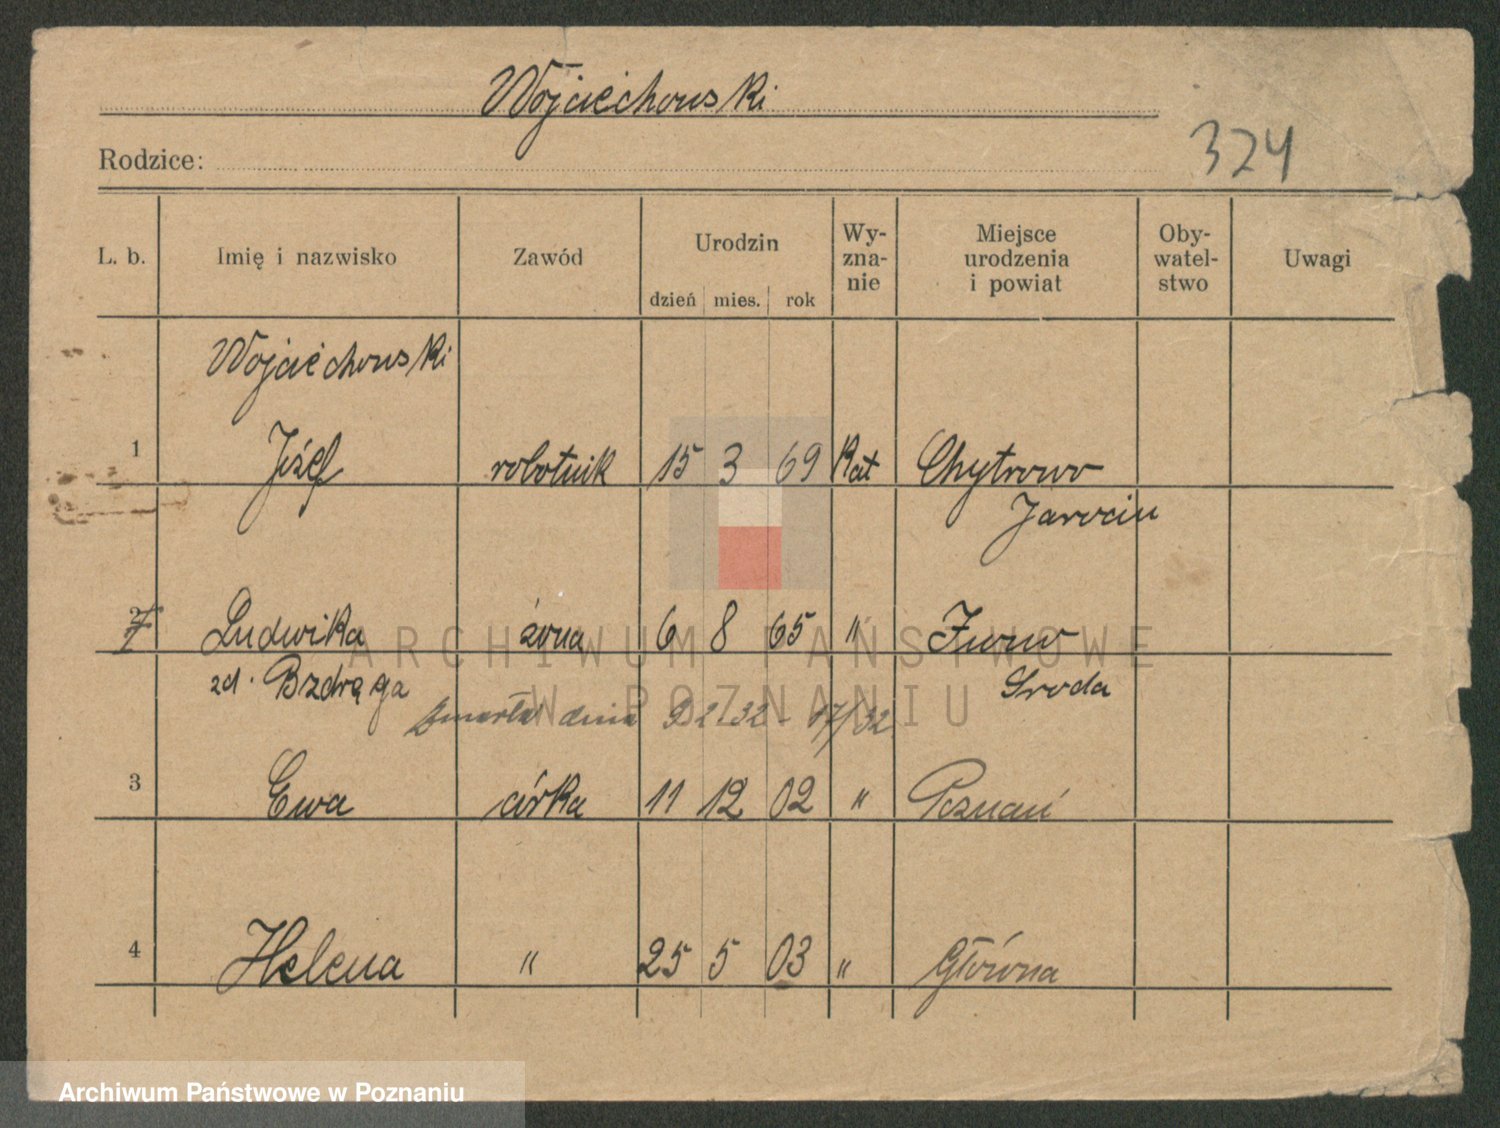 Wojciechowski
Rodzice:
324
L. b. Imię i nazwisko Zawód Urodzin dzień mies. rok Wy-zna-nie Miejsce urodzenia i powiat Oby-watel-stwo Uwagi
Wojciechowski
1 Józef robotnik 15 3 69 Kat Chytrowo
Jarocin
2 Ludwika żona 6 8 65 " Iwno
ARCHIWUM PAŃSTWOWE
zd. Bzdręga Sroda
W POZNANIU
zmarła dnia 9 2 32 - 17/32
3 Ewa córka 11 12 02 " Poznań
4 Helena " 25 5 03 " Główna
Archiwum Państwowe w Poznaniu